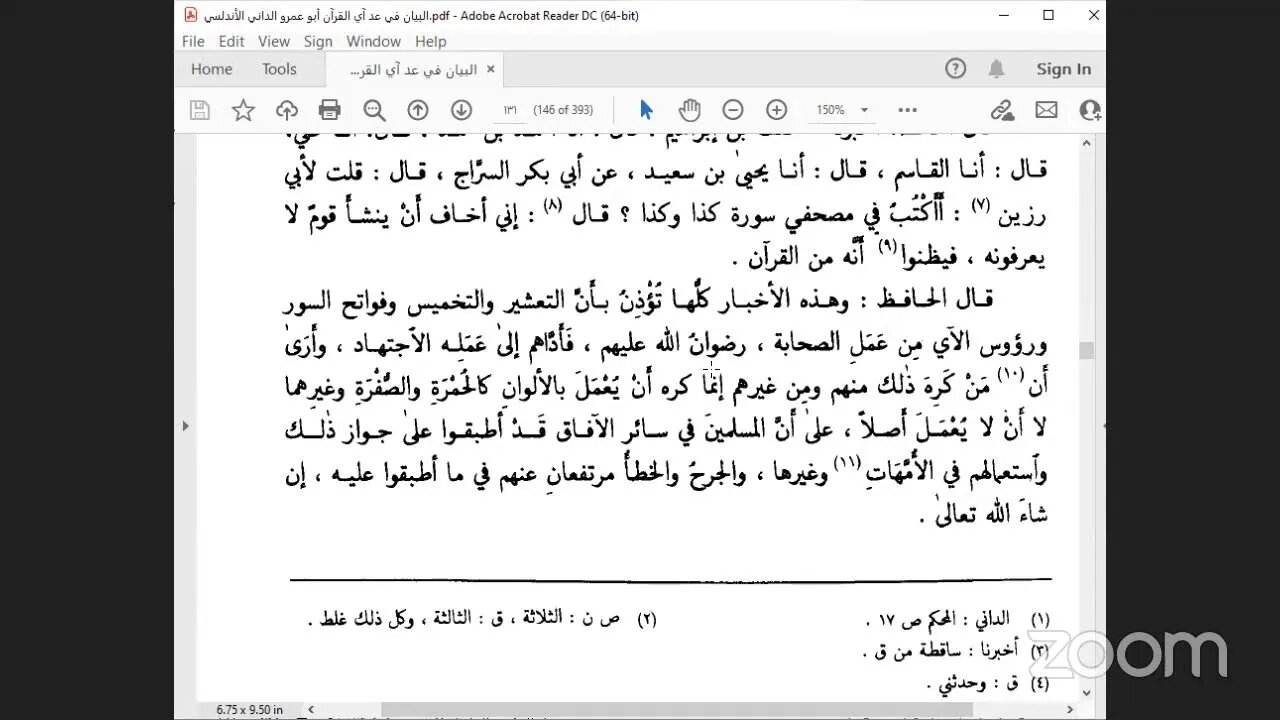 البيان في عد آي القرآن أبو عمرو الداني الأندلسي.pdf - Adobe Acrobat Reader DC (64-bit)
File Edit View Sign Window Help
Home Tools البيان في عد آي القر... × Sign In
١٣١ (146 of 393) 150%
قال : أنا القاسم ، قال : أنا يحيىٰ بن سعيد ، عن أبي بكر السرَّاج ، قال : قلت لأبي
رزين (٧) : أَأَكْتُبُ في مصحفي سورة كذا وكذا ؟ قال (٨) : إني أخاف أَنْ ينشأَ قومٌ لا
يعرفونه ، فيظنوا(٩) أَنَّه من القرآن .
قال الحافظ : وهذه الأخبار كلُّها تُؤْذِنُ بأَنَّ التعشير والتخميس وفواتح السور
ورؤوس الآي مِن عَمَلِ الصحابة ، رضوانُ الله عليهم ، فَأَدَّاهم إلىٰ عَمَلِه الاجتهاد ، وأَرَىٰ
أن (١٠) مَنْ كَرِهَ ذٰلك منهم ومِن غيرهم إنَّما كره أَنْ يُعْمَلَ بالألوانِ كالحُمْرَةِ والصُّفْرَةِ وغيرِهما
لا أَنْ لا يُعْمَلَ أَصلاً ، علىٰ أَنَّ المسلمينَ في سائر الآفاق قَدْ أطبقوا علىٰ جواز ذٰلك
واستعمالهم في الأُمَّهَاتِ (١١) وغيرها ، والجرحُ والخطأُ مرتفعانِ عنهم في ما أطبقوا عليه ، إن
شاءَ الله تعالىٰ .
(١) الداني : المحكم ص ١٧ . (٢) ص ن : الثلاثة ، ق : الثالثة ، وكل ذلك غلط .
(٣) أخبرنا : ساقطة من ق .
(٤) ق : وحدثني .
zoom
6.75 x 9.50 in